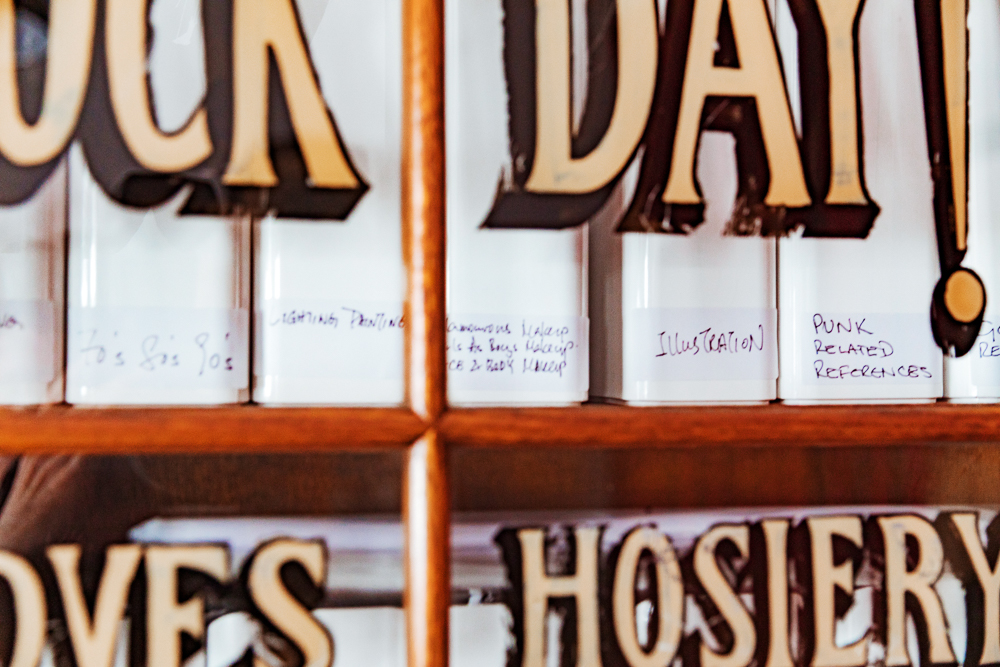 OCK DAY!
70's 80's 90's
LIGHTING PAINTING
Makeup
ls As Boys Makeup.
CE & BODY Makeup
ILLUSTRATION
PUNK
RELATED
REFERENCES
RE
OVES HOSIERY